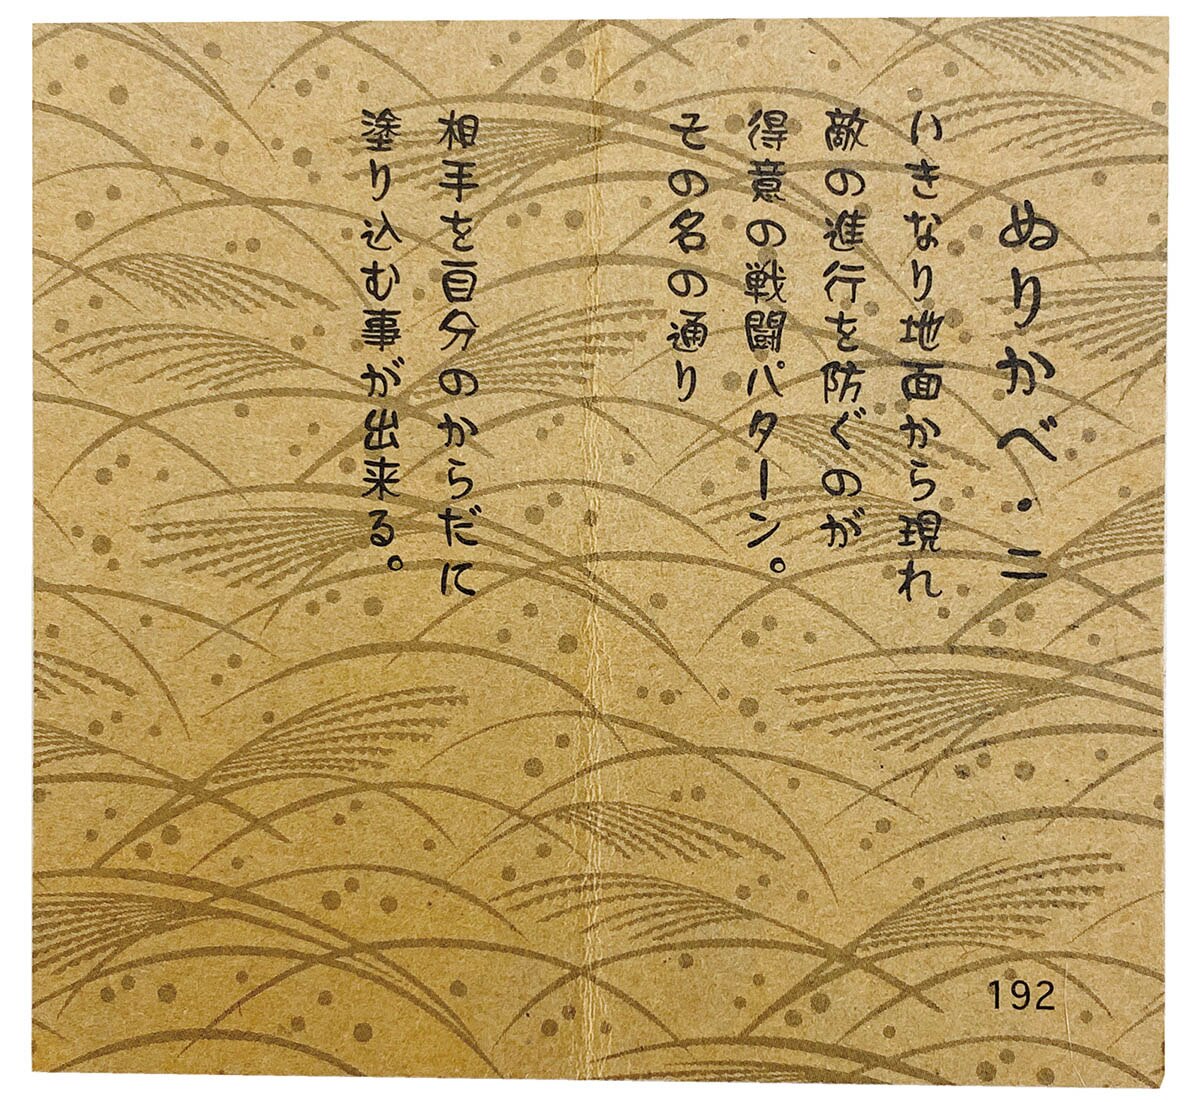 ぬりかべ・ニ
いきなり地面から現れ
敵の進行を防ぐのが
得意の戦闘パターン。
その名の通り
相手を自分のからだに
塗り込む事が出来る。
192